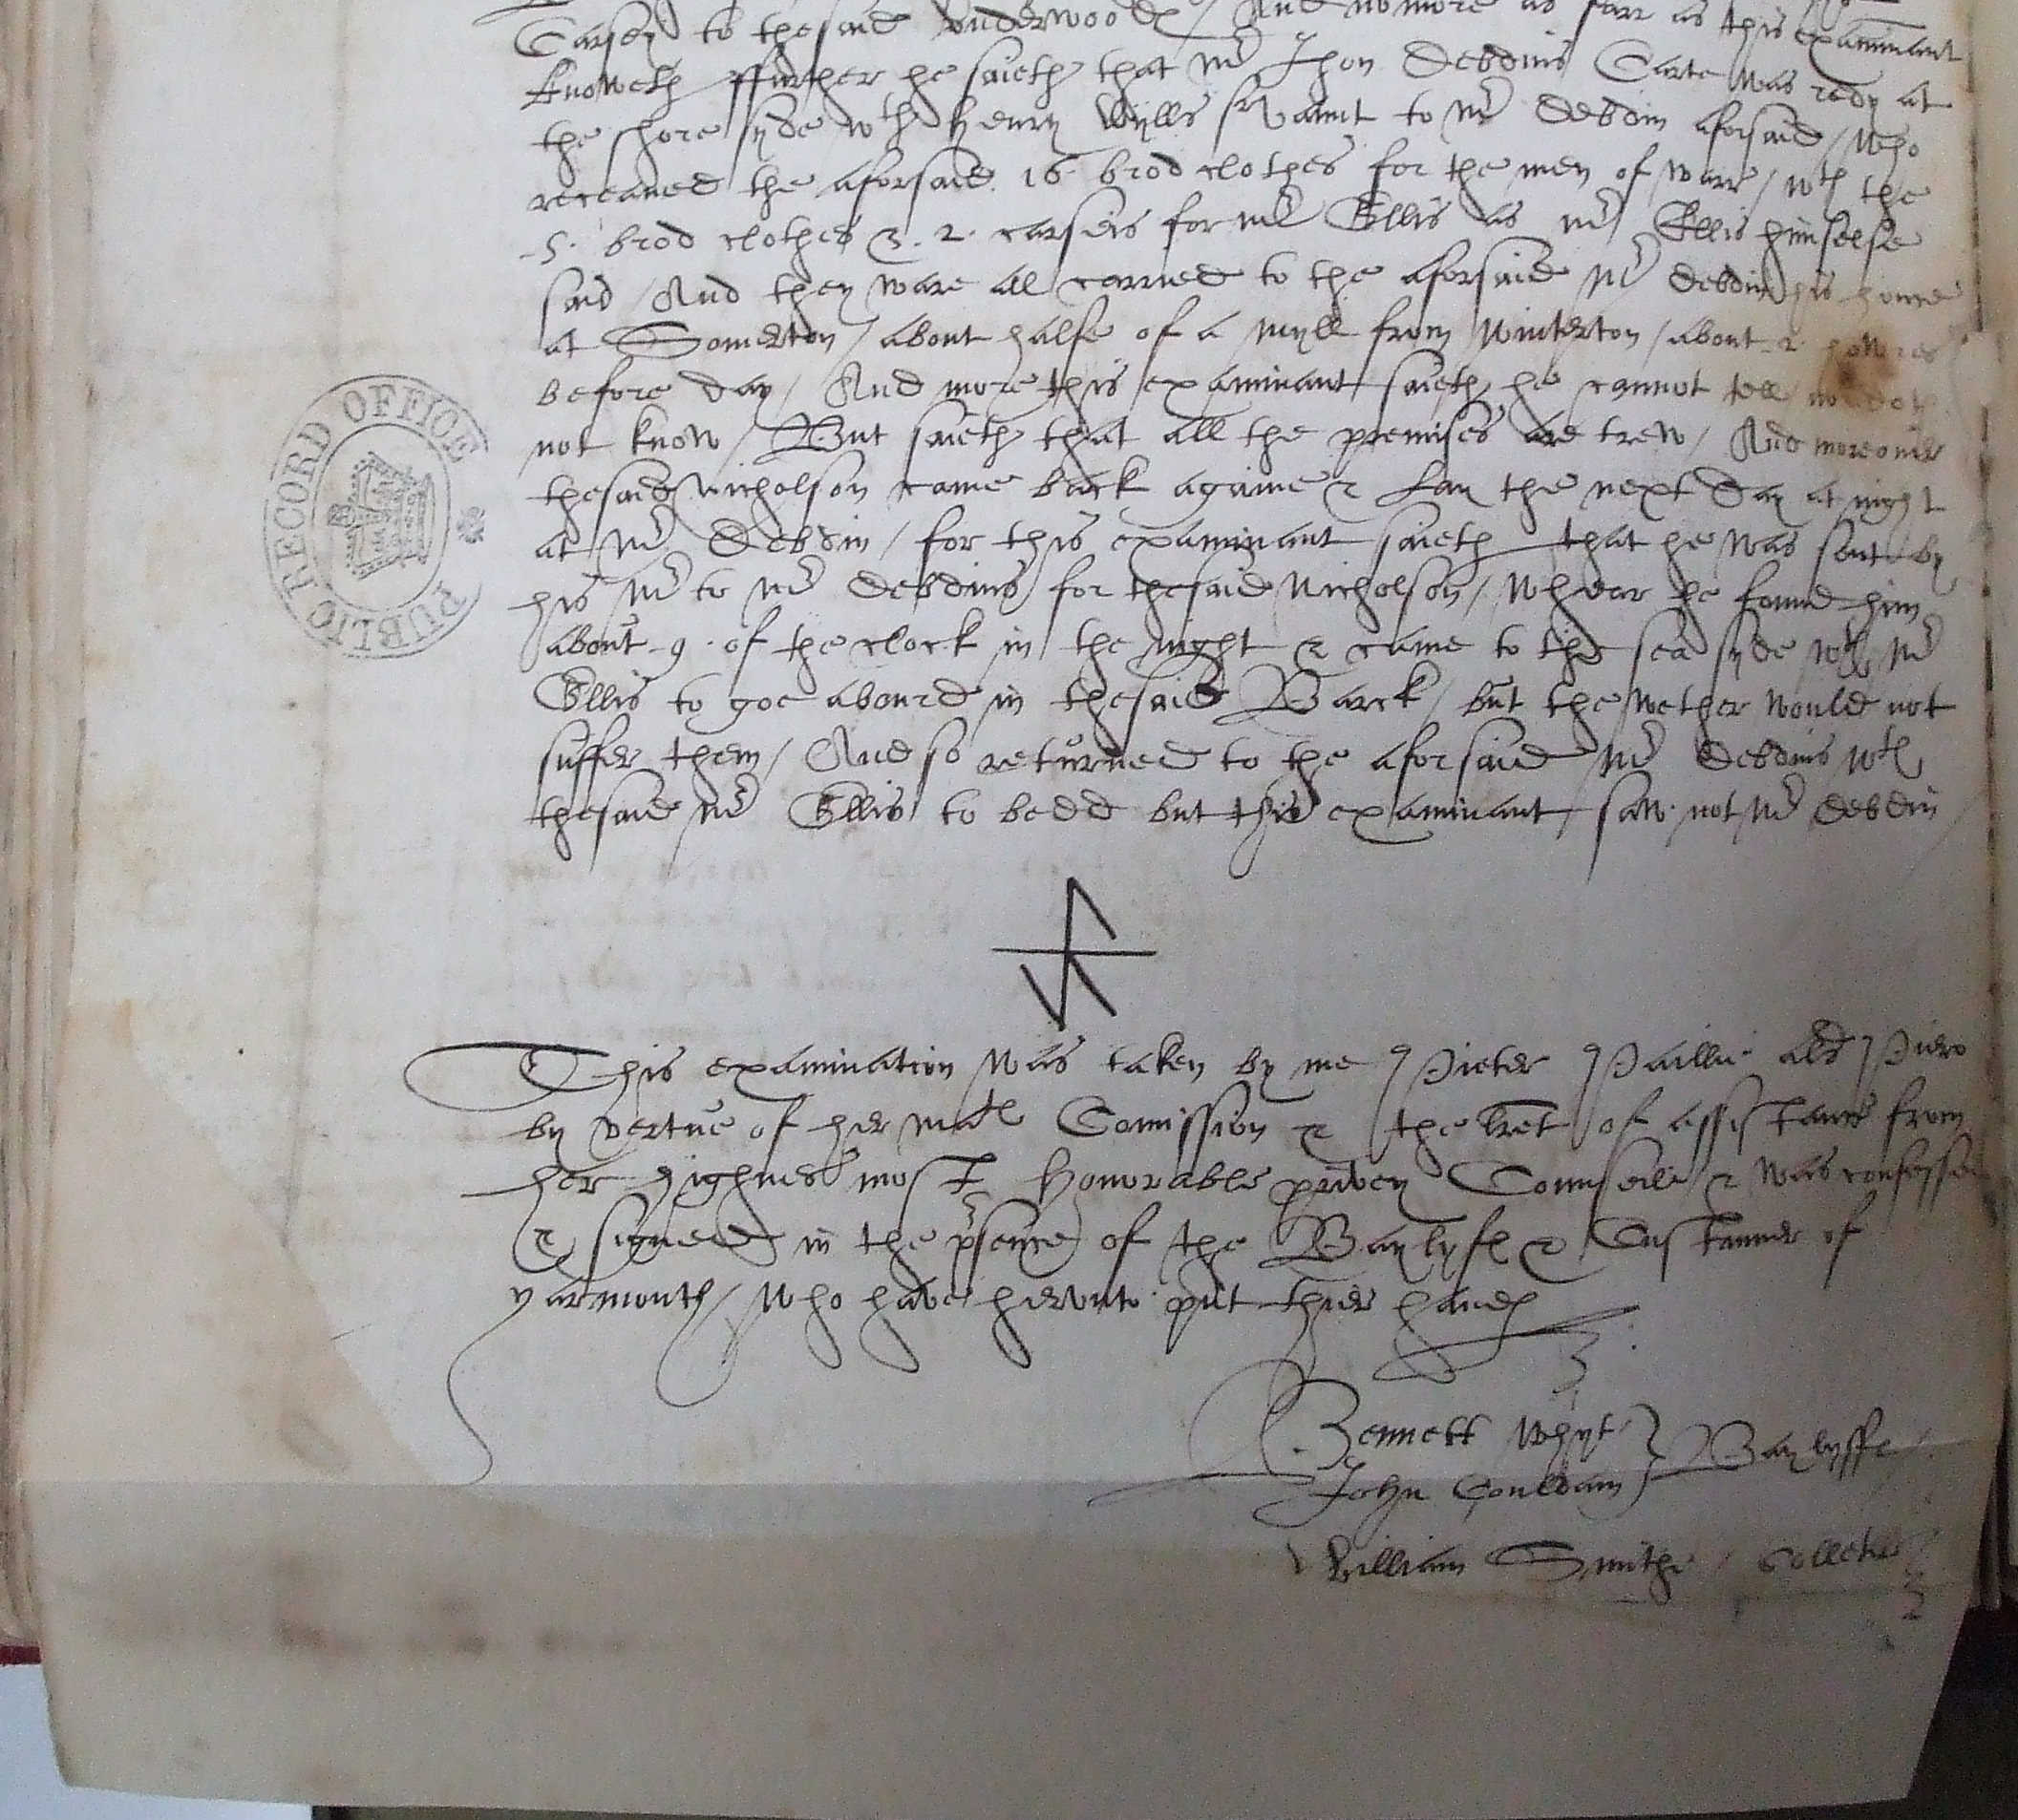 Carsey to thesaid Underwoode / And nomore as farr as this examinant
knoweth ffurther he saieth that mr Jhon Debdins Carte was redy at
the shore syde wth henry Wylls servaunt to mr Debdin aforsaid / who
receaued the aforsaid 16 brod clothes for the men of warr / wth the
5. brod clothes & .2. carseis for mr Ellis as mr Ellis himselfe
said / And they ware all carried to the aforsaide mr Debdin his house
at Somerton / about halfe of a myll from Winterton / about 2 howres
before day / And more this examinant saieth he cannot tell
not know / But saieth that all the premises are trew / And moreouer
thesaid Nicholson came back againe & Lay the next Day at night
at mr Debdin / for this examinant saieth that he was sent by
his mr to mr Debdins for thesaid Nicholson / whear he found him
about 9 of the clock in the night & came to the sea syde wth mr
Ellis to goe abourd in thesaid Barck / but the wether would not
suffer them / And so returned to the aforsaid mr Debdins wth
thesaid mr Ellis to bedd but this examinant saw not mr Debdin
This examination was taken by me Pieter
by vertue of her matis Comission & the of assistance from
her highnes most Honorable privey Counseile & was confessed
& signed in the psence of the Baylyfs & Custaumer of
yarmouth / who have hervnto put thier handes
Bennett Whyt } Baylyffs
John Couldam
William Smithe / Collector
PUBLIC RECORD OFFICE